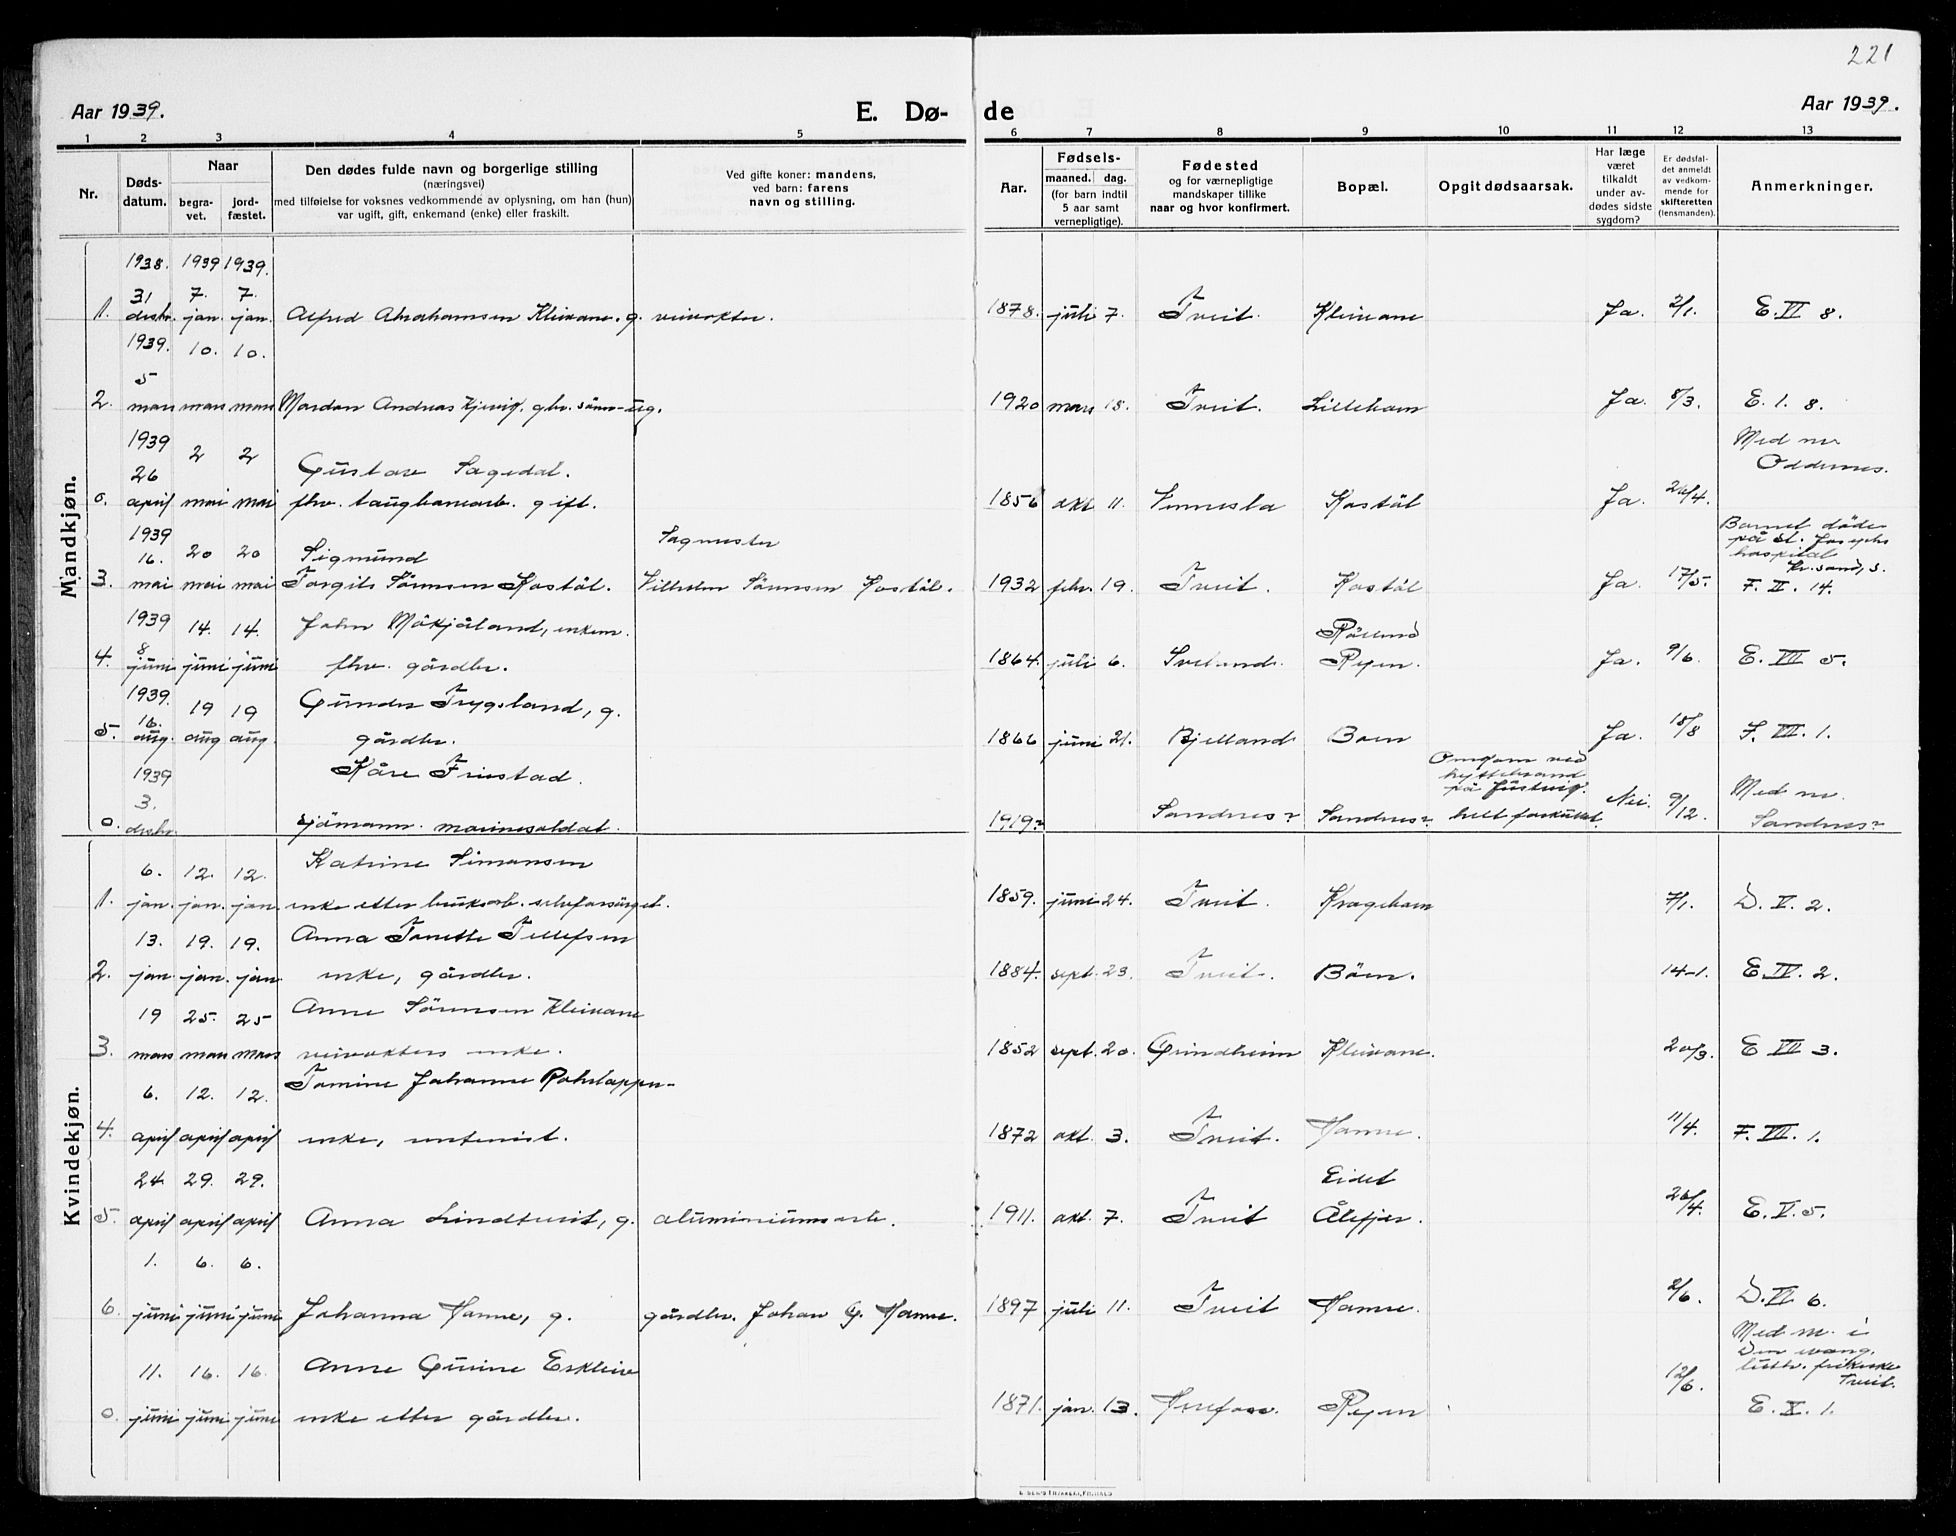 221
Aar 1939. E. Dø- de Aar 1939.
1 2 3 4 5 6 7 8 9 10 11 12 13
Nr.
Døds-
datum.
Naar
begra-
vet.
jord-
fæstet.
Den dødes fulde navn og borgerlige stilling
(næringsvei)
med tilføielse for voksnes vedkommende av oplysning, om han (hun)
var ugift, gift, enkemand (enke) eller fraskilt.
Ved gifte koner: mandens,
ved barn: farens
navn og stilling.
Aar.
Fødsels-
maaned. dag.
(for barn indtil
5 aar samt
vernepligtige).
Fødested
og for værnepligtige
mandskaper tillike
naar og hvor konfirmert.
Bopæl.
Opgit dødsaarsak.
Har læge
været
tilkaldt
under av-
dødes sidste
sygdom?
Er dødsfal-
det anmeldt
av vedkom-
mende for
skifteretten
(lensmanden).
Anmerkninger.
Mandkjøn.
1938. 1939 1939.
31 7. 7.
1. desbr. jan. jan. Alfred Abrahamsen Kleivane. g. veivokter. 1878. juli 7. Tveit. Kleivane Ja. 2/1. E. VI 8.
1939. 10. 10.
5
2. mars mars mars Mordon Andreas Kjevig. gbr. sönn - ug. 1920 mars 18. Tveit. Lilleham Ja. 8/3. E. 1. 8.
1939 2 2 Med nr
26 Gustav Sagedal. Oddernes.
0. april mai mai fhv. taugbanearb. gift. 1856 okt 11. Vennesla Kostöl Ja. 26/4.
1939 Sagmester Barnet döde
16. 20 20 Sigmund på St. Josephs
hospital
Kr.sand, S.
3. mai mai mai Torgils Sörensen Kostöl. Vilhelm Sörensen Kostöl. 1932 febr. 19. Tveit. Kostöl Ja. 17/5. F. II. 14.
1939 14. 14. John Mökjåland, enkem.
8
4. juni juni juni fhv. gårdbr. 1864. juli 6. Sveland. Ryen. Ja. 9/6. E. VII 5.
1939. 19 19 Gunder Trygsland, g.
16.
5. aug. aug aug. gårdbr. 1866 juni 21. Bjelland Boen Ja. 18/8 F. VII. 1.
1939 Kåre Fristad. Omkom ved
hyttebrand
3. på Justvig. Med nr.
0. desbr. sjömann. marinesoldat. 1919? Sandnes? Sandnes? helt forkullet. Nei. 9/12 Sandnes?
Kvindekjøn.
6. 12. 12. Katrine Simonsen
1. jan. jan. jan. enke etter bruksarb. selvforsörget. 1859. juni 24. Tveit. Kragehom 7/1. D. V. 2.
13. 19. 19. Anna Tonette Tellefsen
2. jan. jan. jan enke, gårdbr. 1884. sept. 23. Tveit. Böen. 14-1. E. IV. 2.
19 25. 25 Anne Sörensen Kleivane
3. mars mars mars veivokters enke. 1852 sept. 20. Grindheim Kleivane. 20/3. E VII 3.
6. 12. 12. Tomine Johanne
4. april april april enke, rentenist. 1872 okt. 3. Tveit. Hamre. 11/4. F. VII. 1.
24. 29. 29. Eidet
5. april april april Anna Lindtveit, g. aluminiumsarb. 1911. okt. 7. Tveit Ålefjær. 26/4. E. V. 5.
1. 6. 6.
6. juni juni juni Johanna Hamre, g. gårdbr. Johan G. Hamre. 1897 juli 11. Tveit Hamre. 2/6. D. VI 6.
Med nr. i
Den evang.
11. 16. 16. Anne Gurine Eskleiv luth. frikirke
Tveit.
0. juni juni juni enke etter gårdbr. 1871. jan. 13. Herefoss. Ryen 12/6. E. X. 1.